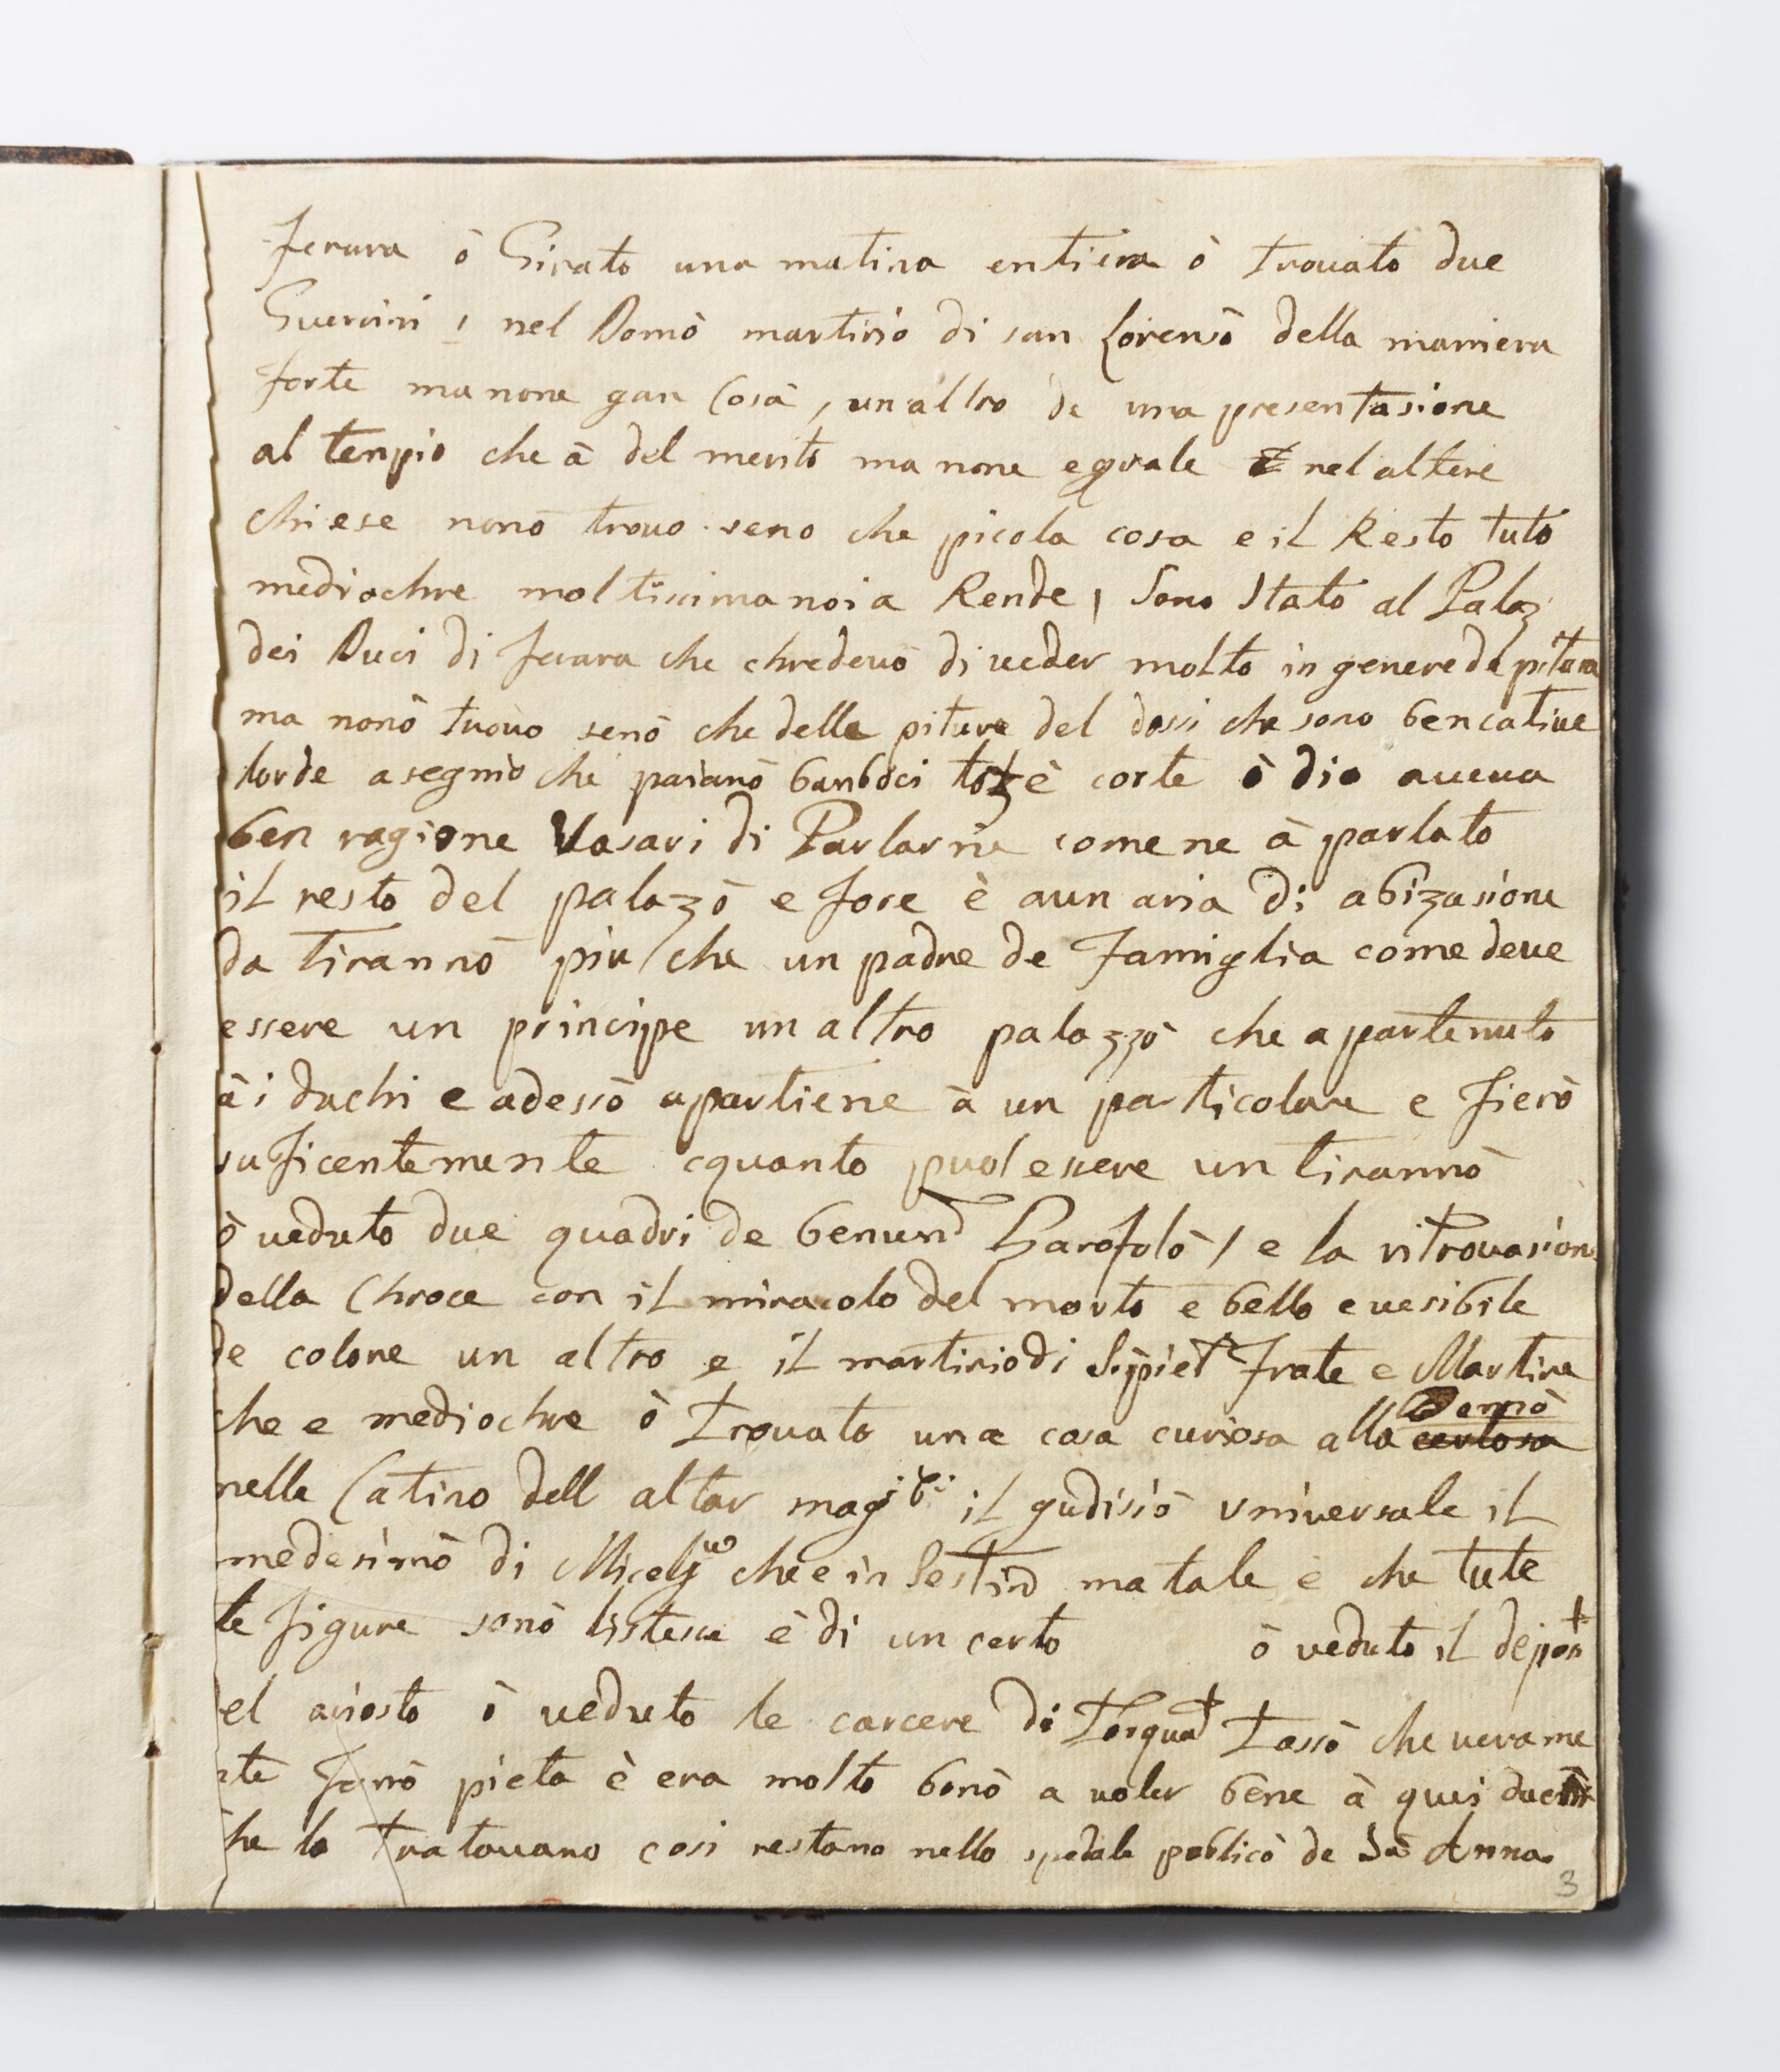 Ferara ò Girato una matina entiera ò trovato due
Guercini 1 nel Domò martirio di san Lorensò della maniera
forte ma none gan Cosà, un altro de una presentasione
al tenpio che à del merito ma none equale nel altere
chiese nonò trovo seno che picola cosa e il Resto tutò
mediochre moltissima noia Rende, Sono Stato al Palaz
dei Duci di ferara che chredevò di veder molto in genere de pitura
ma nonò trovo senò che delle piture del dossi che sono ben cative
lorde a segniò che paianò banboci toz è corte ò dio aveva
ben ragione Vasari di Parlarne come ne à parlato
il resto del palazò e fore è a un aria di abizasione
da tirannò piu che un padre de famiglia come deve
essere un principe un altro palazzò che apartenutò
ài duchi e adessò apartiene à un particolare e fierò
suficentemente cquanto puol essere un tirannò
ò veduto due quadri de benund Garofolò / e la ritrovasion
della Chroce con il miracolo del morto e bello e vesibile
de colore un altro e il martirio di S. piet frate e Martire
che e mediochre ò trovato una cosa curiosa alla certosa Domò
nelle Catino dell altar mag il gudisiò universale il
medesimò di Micelj che e in Sestin ma tale e che tute
le figure sonò listesse è di un certo ò veduto il depon
el ariosto ò veduto le carcere di Torquat Tassò che verame
nte fanò pieta è era molto bonò a voler bene à quei duchi
che lo tratavano cosi restano nello spedale publicò de Sa Anna
3